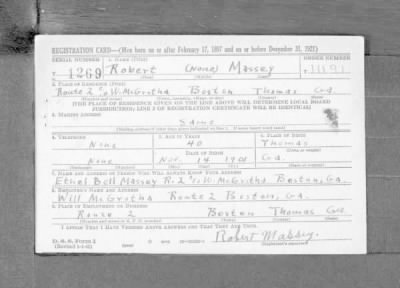 REGISTRATION CARD—(Men born on or after February 17, 1897 and on or before December 31, 1921)
SERIAL NUMBER 1. NAME (Print) ORDER NUMBER
T 1269 Robert (None) Massey 11191
2. PLACE OF RESIDENCE (Print)
Route 2 c/o W. McGrotha Boston Thomas Ga.
[THE PLACE OF RESIDENCE GIVEN ON THE LINE ABOVE WILL DETERMINE LOCAL BOARD
JURISDICTION; LINE 2 OF REGISTRATION CERTIFICATE WILL BE IDENTICAL]
3. MAILING ADDRESS
Same
[Mailing address if other than place indicated on line 2. If same insert word same]
4. TELEPHONE 5. AGE IN YEARS 6. PLACE OF BIRTH
None 40 Thomas
DATE OF BIRTH
None Nov. 14 1901 Ga.
7. NAME AND ADDRESS OF PERSON WHO WILL ALWAYS KNOW YOUR ADDRESS
Ethel Bell Massey R.2 c/o W. McGrotha Boston, Ga.
8. EMPLOYER'S NAME AND ADDRESS
Will McGrotha Route 2 Boston, Ga.
9. PLACE OF EMPLOYMENT OR BUSINESS
Route 2 Boston Thomas Ga.
I AFFIRM THAT I HAVE VERIFIED ABOVE ANSWERS AND THAT THEY ARE TRUE.
D. S. S. Form 1
Robert Massey